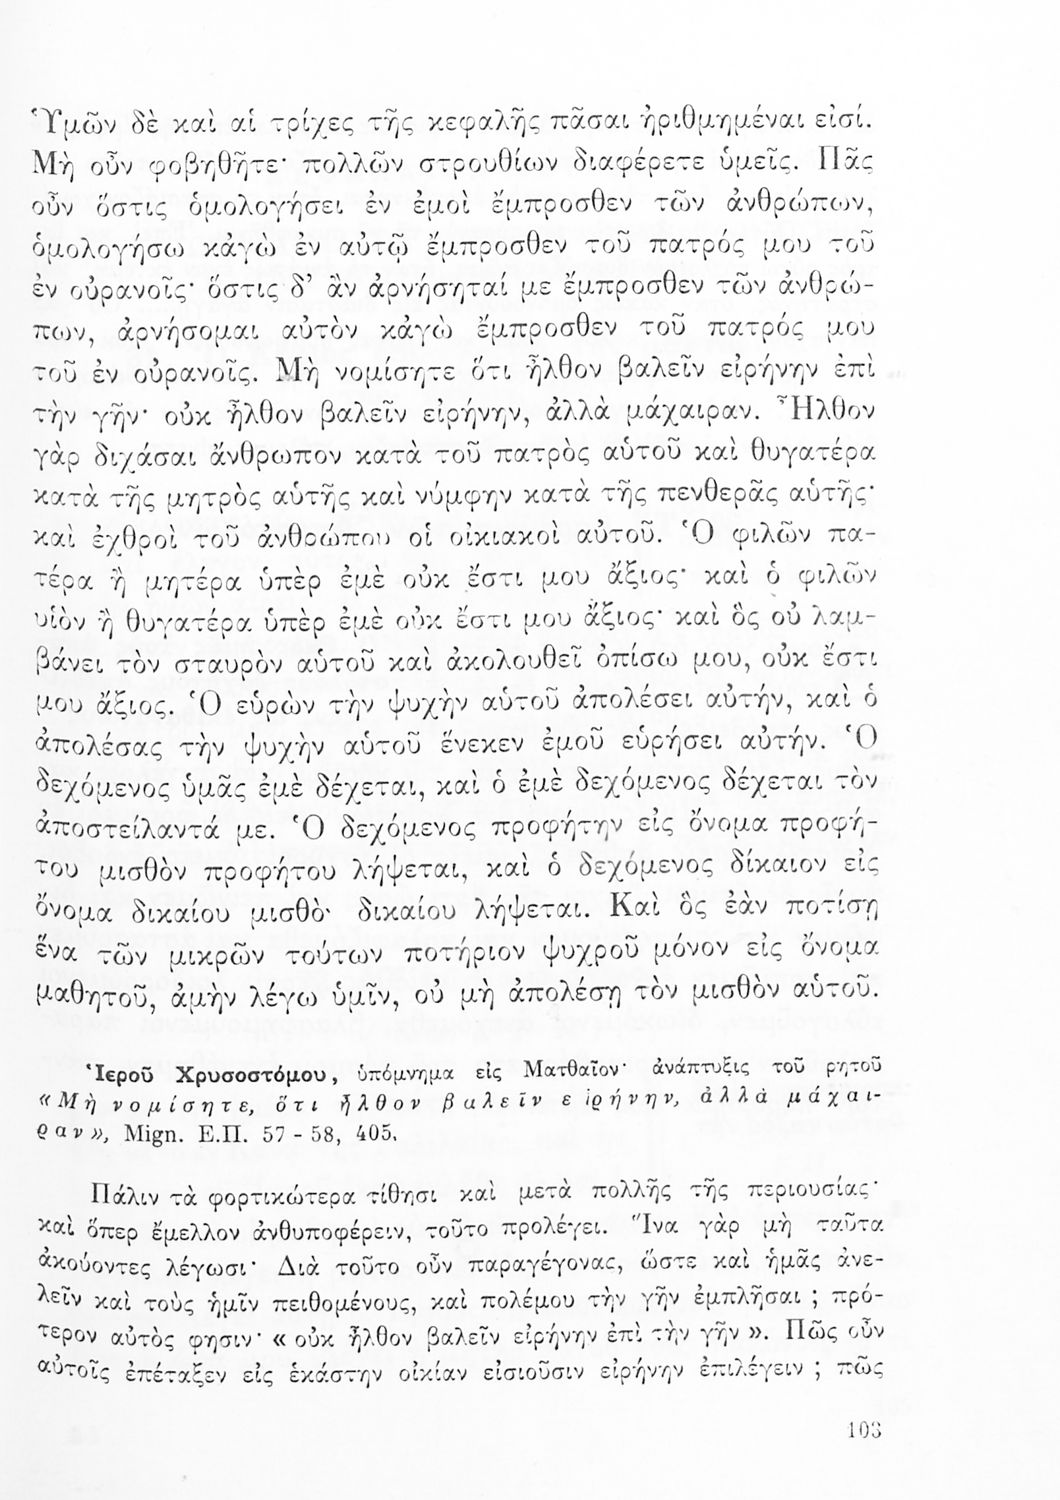 Ὑμῶν δὲ καὶ αἱ τρίχες τῆς κεφαλῆς πᾶσαι ἠριθμημέναι εἰσί.
Μὴ οὖν φοβηθῆτε· πολλῶν στρουθίων διαφέρετε ὑμεῖς. Πᾶς
οὖν ὅστις ὁμολογήσει ἐν ἐμοὶ ἔμπροσθεν τῶν ἀνθρώπων,
ὁμολογήσω κἀγὼ ἐν αὐτῷ ἔμπροσθεν τοῦ πατρός μου τοῦ
ἐν οὐρανοῖς· ὅστις δ’ ἂν ἀρνήσηταί με ἔμπροσθεν τῶν ἀνθρώ-
πων, ἀρνήσομαι αὐτὸν κἀγὼ ἔμπροσθεν τοῦ πατρός μου
τοῦ ἐν οὐρανοῖς. Μὴ νομίσητε ὅτι ἦλθον βαλεῖν εἰρήνην ἐπὶ
τὴν γῆν· οὐκ ἦλθον βαλεῖν εἰρήνην, ἀλλὰ μάχαιραν. Ἦλθον
γὰρ διχάσαι ἄνθρωπον κατὰ τοῦ πατρὸς αὑτοῦ καὶ θυγατέρα
κατὰ τῆς μητρὸς αὑτῆς καὶ νύμφην κατὰ τῆς πενθερᾶς αὑτῆς·
καὶ ἐχθροὶ τοῦ ἀνθρώπου οἱ οἰκιακοὶ αὐτοῦ. Ὁ φιλῶν πα-
τέρα ἢ μητέρα ὑπὲρ ἐμὲ οὐκ ἔστι μου ἄξιος· καὶ ὁ φιλῶν
υἱὸν ἢ θυγατέρα ὑπὲρ ἐμὲ οὐκ ἔστι μου ἄξιος· καὶ ὃς οὐ λαμ-
βάνει τὸν σταυρὸν αὑτοῦ καὶ ἀκολουθεῖ ὀπίσω μου, οὐκ ἔστι
μου ἄξιος. Ὁ εὑρὼν τὴν ψυχὴν αὑτοῦ ἀπολέσει αὐτήν, καὶ ὁ
ἀπολέσας τὴν ψυχὴν αὑτοῦ ἕνεκεν ἐμοῦ εὑρήσει αὐτήν. Ὁ
δεχόμενος ὑμᾶς ἐμὲ δέχεται, καὶ ὁ ἐμὲ δεχόμενος δέχεται τὸν
ἀποστείλαντά με. Ὁ δεχόμενος προφήτην εἰς ὄνομα προφή-
του μισθὸν προφήτου λήψεται, καὶ ὁ δεχόμενος δίκαιον εἰς
ὄνομα δικαίου μισθὸ· δικαίου λήψεται. Καὶ ὃς ἐὰν ποτίσῃ
ἕνα τῶν μικρῶν τούτων ποτήριον ψυχροῦ μόνον εἰς ὄνομα
μαθητοῦ, ἀμὴν λέγω ὑμῖν, οὐ μὴ ἀπολέσῃ τὸν μισθὸν αὑτοῦ.
Ἱεροῦ Χρυσοστόμου, ὑπόμνημα εἰς Ματθαῖον· ἀνάπτυξις τοῦ ρητοῦ
«Μὴ νομίσητε, ὅτι ἦλθον βαλεῖν εἰρήνην, ἀλλὰ μάχαι-
ραν», Mign. Ε.Π. 57 - 58, 405.
Πάλιν τὰ φορτικώτερα τίθησι καὶ μετὰ πολλῆς τῆς περιουσίας·
καὶ ὅπερ ἔμελλον ἀνθυποφέρειν, τοῦτο προλέγει. Ἵνα γὰρ μὴ ταῦτα
ἀκούοντες λέγωσι· Διὰ τοῦτο οὖν παραγέγονας, ὥστε καὶ ἡμᾶς ἀνε-
λεῖν καὶ τοὺς ἡμῖν πειθομένους, καὶ πολέμου τὴν γῆν ἐμπλῆσαι ; πρό-
τερον αὐτός φησιν· « οὐκ ἦλθον βαλεῖν εἰρήνην ἐπὶ τὴν γῆν ». Πῶς οὖν
αὐτοῖς ἐπέταξεν εἰς ἑκάστην οἰκίαν εἰσιοῦσιν εἰρήνην ἐπιλέγειν ; πῶς
103